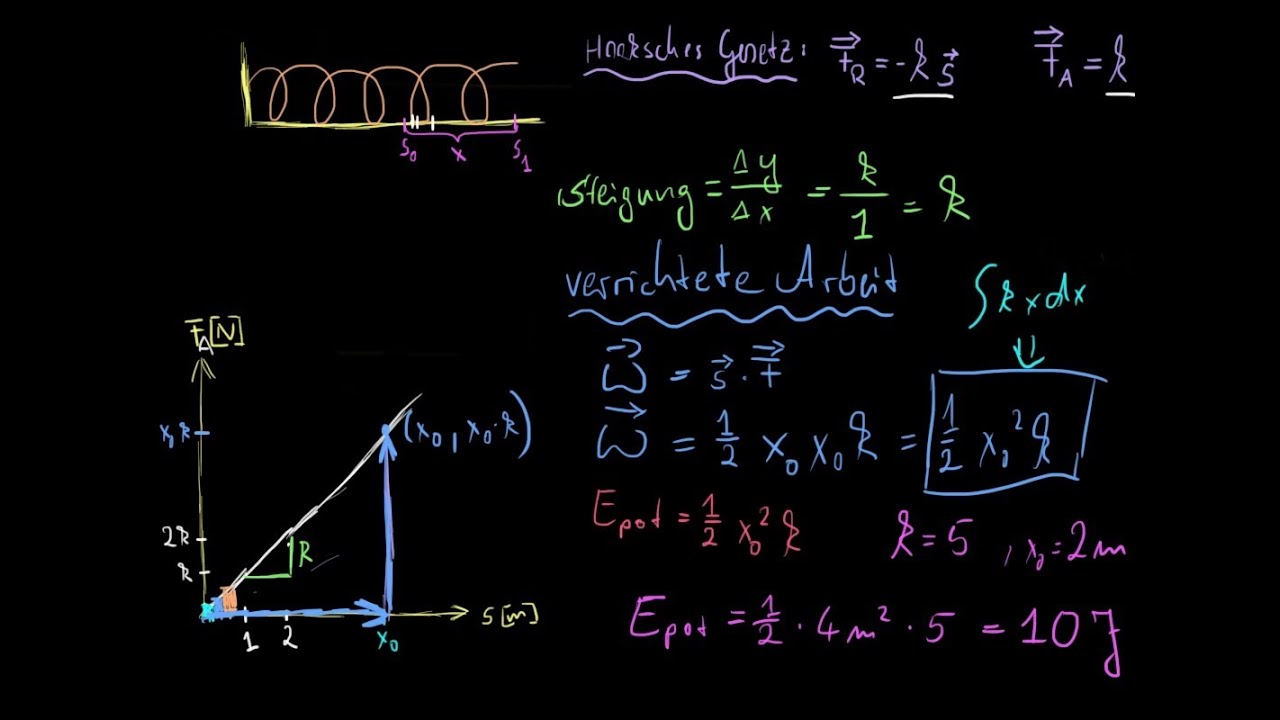 Hooksches Gesetz: F⃗_R = -k s⃗   F⃗_A = k
s₀   x   s₁
Steigung = Δy/Δx = k/1 = k
verrichtete Arbeit
∫ k x dx
W⃗ = s⃗ · F⃗
W⃗ = 1/2 x₀ x₀ k = 1/2 x₀² k
E_pot = 1/2 x₀² k
k = 5 , x₀ = 2m
E_pot = 1/2 · 4m² · 5 = 10 J
F_A [N]
x₀ k
(x₀ , x₀ · k)
2k
k
k
s [m]
1   2   x₀